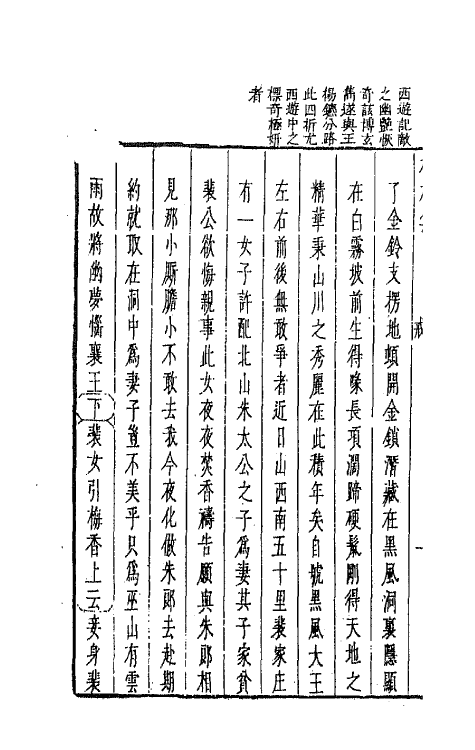 西遊記敵
之幽艷恢
奇該博玄
雋遂與王
楊鑣分路
此四折尤
西遊中之
標奇極妍
者
了金鈴支楞地頓開金鎖潛藏在黑風洞裏隱顯
在白霧坡前生得喙長項濶蹄硬鬣剛得天地之
精華秉山川之秀麗在此積年矣自號黑風大王
左右前後無敢爭者近日山西南五十里裴家庄
有一女子許配北山朱太公之子爲妻其子家貧
裴公欲悔親事此女夜夜焚香禱告願與朱郎相
見那小厮膽小不敢去我今夜化做朱郎去赴期
約就取在洞中爲妻子豈不美乎只爲巫山有雲
雨故將幽夢惱襄王下裴女引梅香上云妾身裴